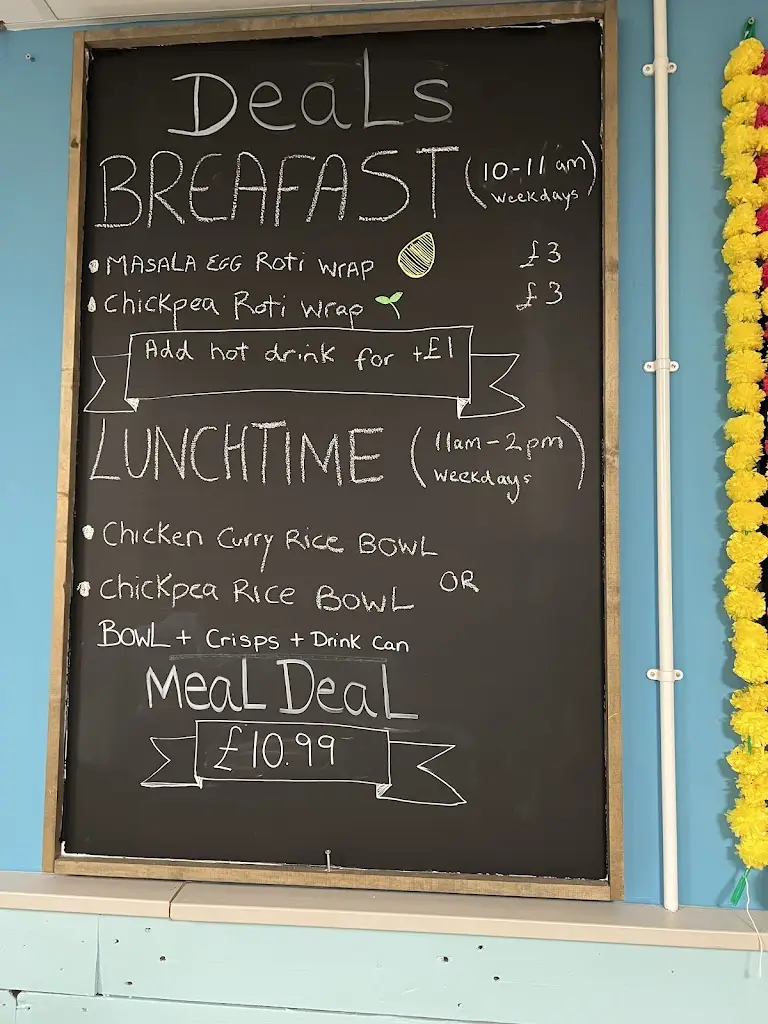 DeaLs
BREAFAST (10-11 am)
weekdays
MASALA EGG Roti WRAP £3
Chickpea Roti Wrap £3
Add hot drink for +£1
LUNCHTIME (11am-2pm)
weekdays
Chicken Curry Rice BOWL
OR
Chickpea Rice BOWL
BOWL + Crisps + Drink Can
MeaL DeaL
£10.99